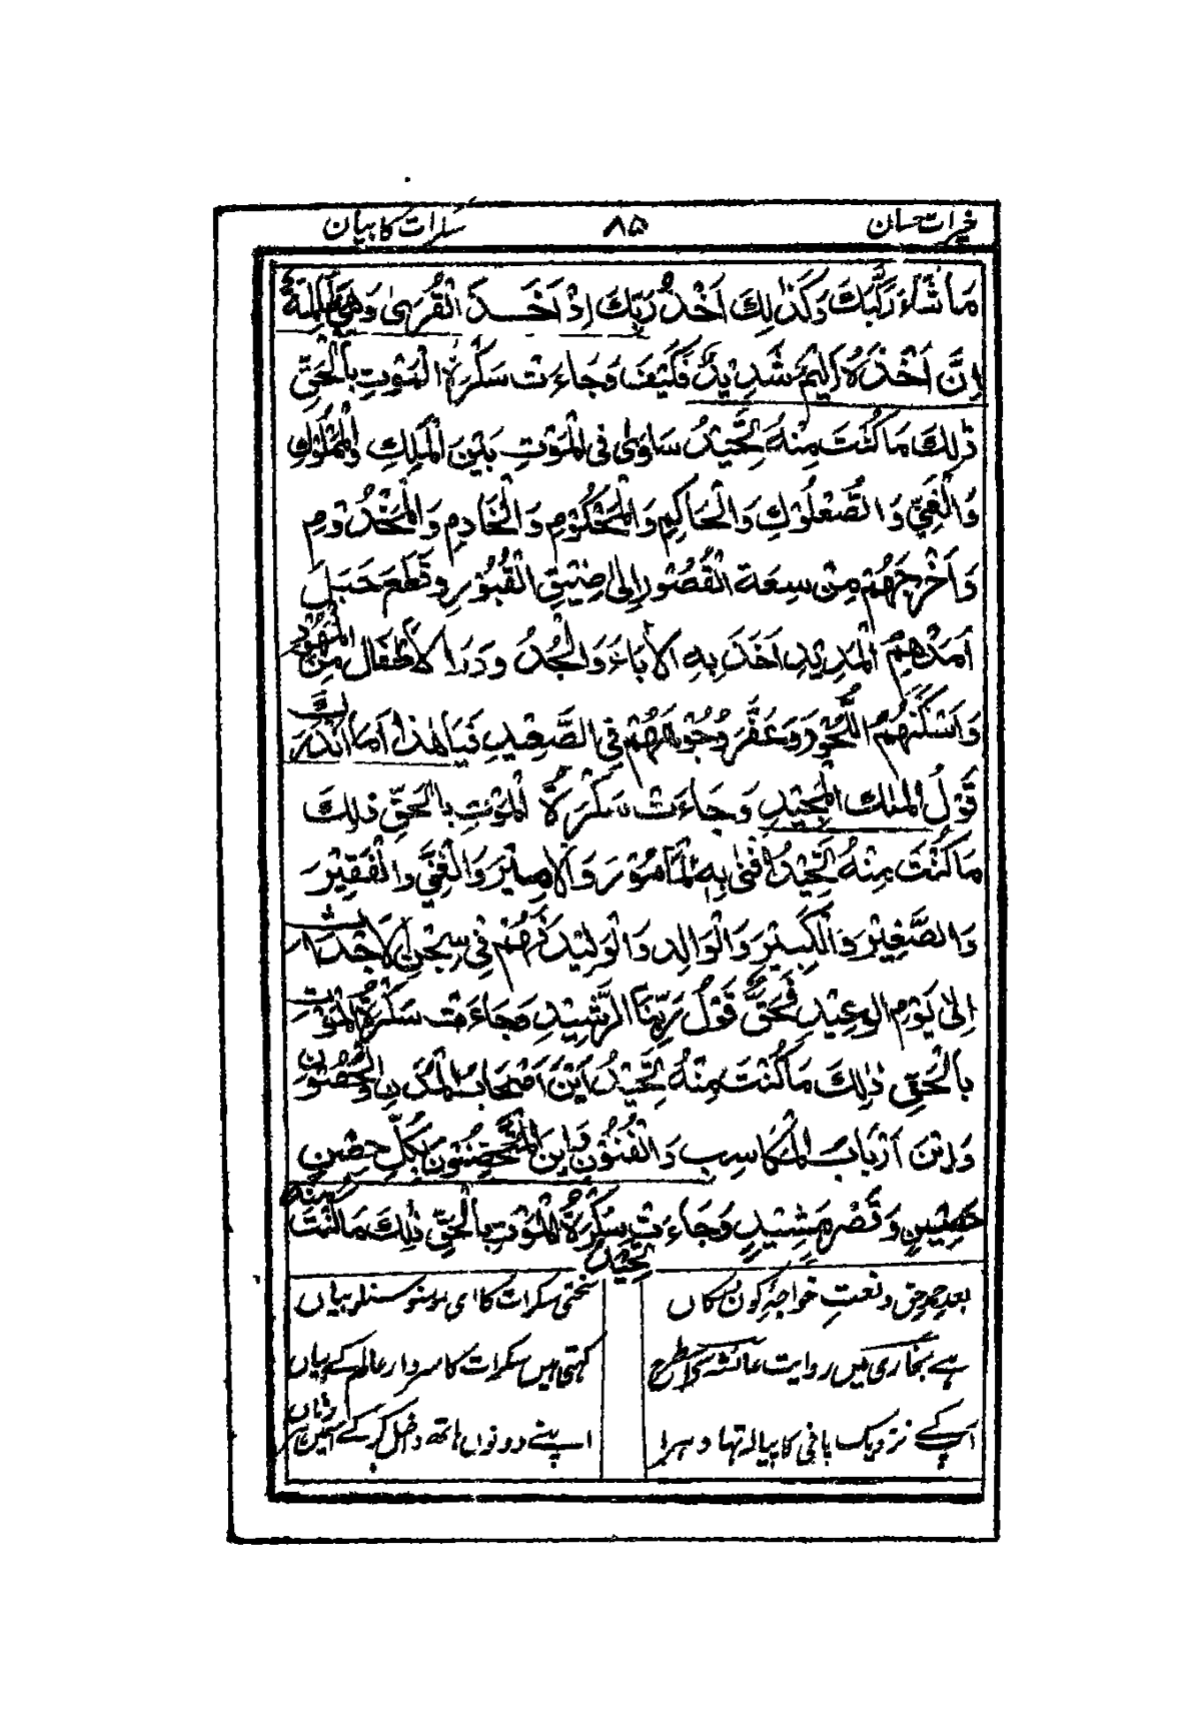 خیرات حسان ۸۵ سکرات کا بیان
مَا شَاءَ رَكَّبَكَ وَكَذٰلِكَ اَخْذُ رَبِّكَ اِذْ اَخَذَ الْقُرٰى وَهِيَ ظَالِمَةٌ
اِنَّ اَخْذَهٗ اَلِيْمٌ شَدِيْدٌ فَكَيْفَ وَجَاءَتْ سَكْرَةُ الْمَوْتِ بِالْحَقِّ
ذٰلِكَ مَا كُنْتَ مِنْهُ تَحِيْدُ سَاوٰى فِى الْمَوْتِ بَيْنَ الْمَلِكِ وَالْمَمْلُوْكِ
وَالْغَنِيِّ وَالصُّعْلُوْكِ وَالْحَاكِمِ وَالْمَحْكُوْمِ وَالْخَادِمِ وَالْمَخْدُوْمِ
وَاَخْرَجَهُمْ مِنْ سِعَةِ الْقُصُوْرِ اِلٰى ضِيْقِ الْقُبُوْرِ وَقَطَعَ حَبْلَ
اَمَدِهِمُ الْمَدِيْدِ اَخَذَ بِهِ الْاٰبَاءَ وَالْجُدُوْدَ وَ الْاَطْفَالَ مِنَ الْمُهُوْدِ
وَاَسْكَنَهُمُ اللُّحُوْدَ وَعَفَّرَ وُجُوْهَهُمْ فِى الصَّعِيْدِ فَيَا هٰذَا اَمَا اَنْذَرَكَ
قَوْلُ الْمَلِكِ الْمَجِيْدِ وَجَاءَتْ سَكْرَةُ الْمَوْتِ بِالْحَقِّ ذٰلِكَ
مَا كُنْتَ مِنْهُ تَحِيْدُ اَفْنٰى بِهِ الْمَأْمُوْرَ وَالْاَمِيْرَ وَالْغَنِيَّ وَالْفَقِيْرَ
وَالصَّغِيْرَ وَالْكَبِيْرَ وَالْوَالِدَ وَالْوَلِيْدَ فَهُمْ فِيْ سِجْنِ الْاَجْدَاثِ
اِلٰى يَوْمِ الْوَعِيْدِ فَحَقَّ قَوْلُ رَبِّنَا الرَّشِيْدِ وَجَاءَتْ سَكْرَةُ الْمَوْتِ
بِالْحَقِّ ذٰلِكَ مَا كُنْتَ مِنْهُ تَحِيْدُ اَيْنَ اَصْحَابُ الْمُدُنِ وَالْحُصُوْنِ
وَاَيْنَ اَرْبَابُ الْمَكَاسِبِ وَالْفُنُوْنِ وَاَيْنَ الْمُتَحَصِّنُوْنَ بِكُلِّ حِصْنٍ
حَصِيْنٍ وَقَصْرٍ مَشِيْدٍ وَجَاءَتْ سَكْرَةُ الْمَوْتِ بِالْحَقِّ ذٰلِكَ مَا كُنْتَ مِنْهُ
تَحِيْدُ
بعد حمد حق و نعتِ خواجۂ کون و مکاں سختی سکرات کا ای مومنو سنلو بیاں
ہے بخاری میں روایت عائشہ کی اسطرح کہتی ہیں سکرات کا سردار عالم کے بیاں
آپ کے نزدیک پانی کا پیالہ تہا دہرا اپنے دونوں ہاتھ داخل کر کے اسمیں